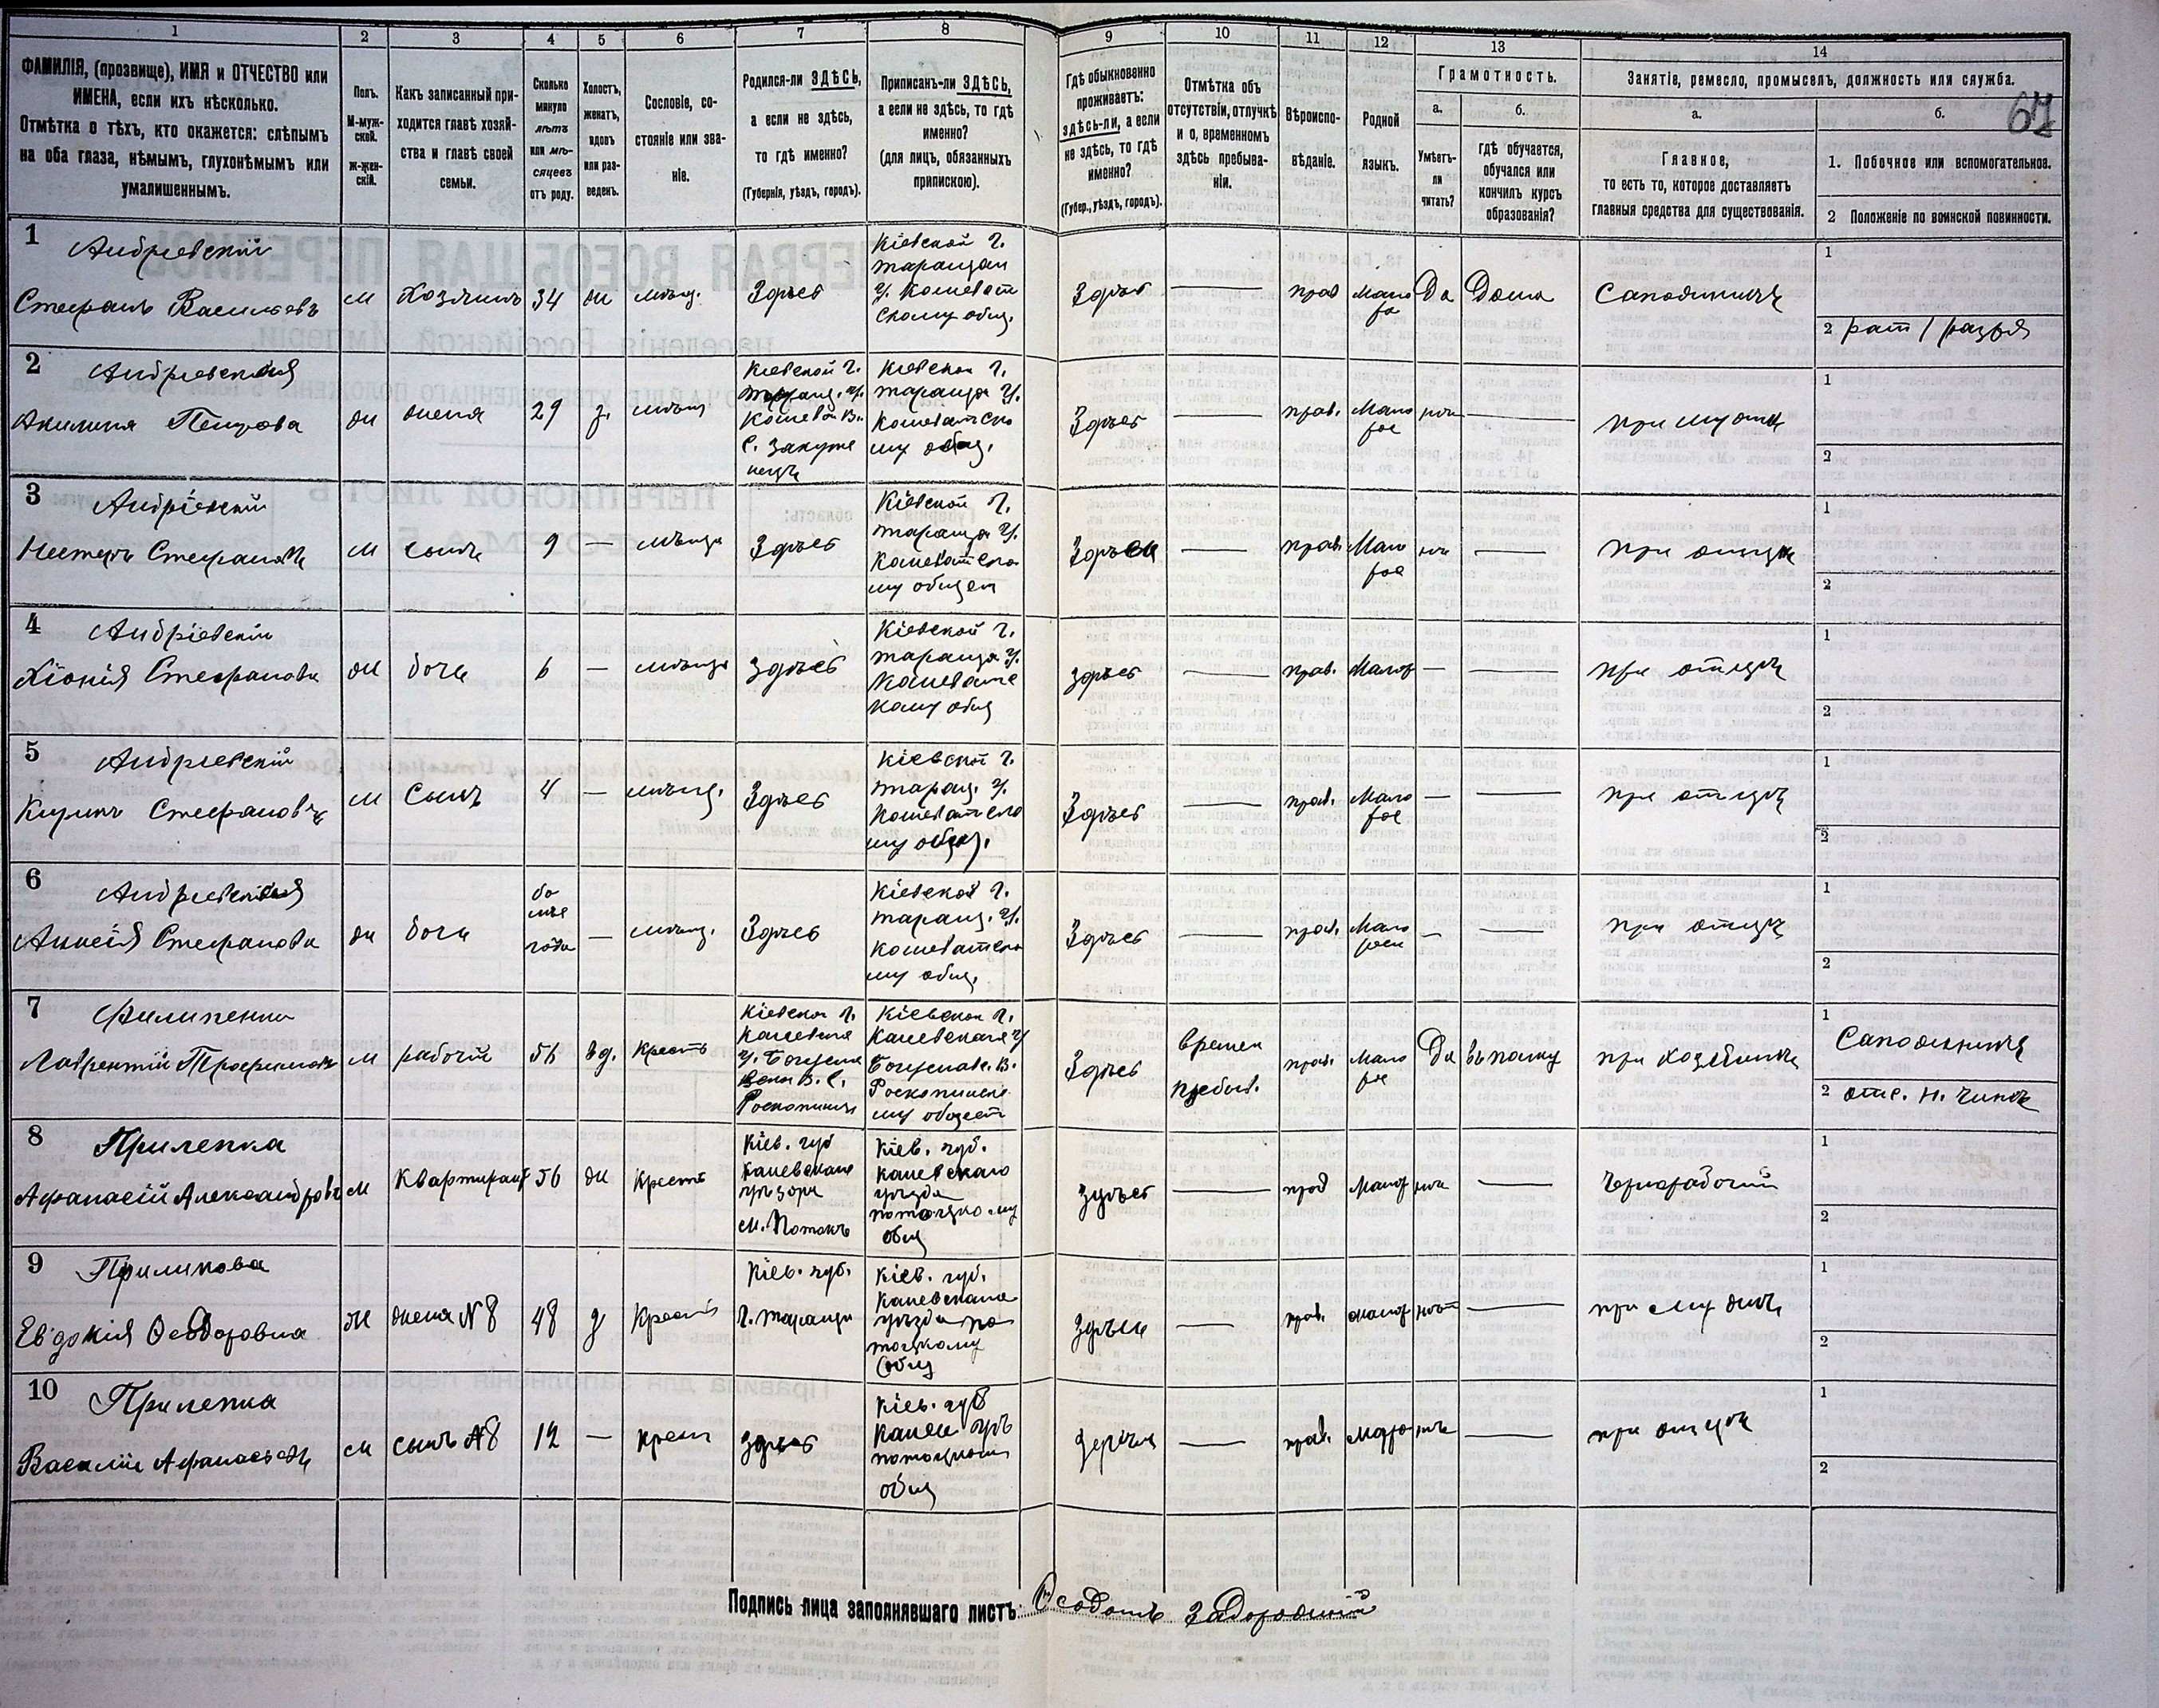 1 2 3 4 5 6 7 8 9 10 11 12 13 14
ФАМИЛІЯ, (прозвище), ИМЯ и ОТЧЕСТВО или
ИМЕНА, если ихъ нѣсколько.
Отмѣтка о тѣхъ, кто окажется: слѣпымъ
на оба глаза, нѣмымъ, глухонѣмымъ или
умалишеннымъ.
Полъ.
М-муж-
ской.
ж-жен-
скій.
Какъ записанный при-
ходится главѣ хозяй-
ства и главѣ своей
семьи.
Сколько
минуло
лѣтъ
или мѣ-
сяцевъ
отъ роду.
Холостъ,
женатъ,
вдовъ
или раз-
веденъ.
Сословіе, со-
стояніе или зва-
ніе.
Родился-ли ЗДѢСЬ,
а если не здѣсь,
то гдѣ именно?
(Губернія, уѣздъ, городъ).
Приписанъ-ли ЗДѢСЬ,
а если не здѣсь, то гдѣ
именно?
(для лицъ, обязанныхъ
припискою).
Гдѣ обыкновенно
проживаетъ:
здѣсь-ли, а если
не здѣсь, то гдѣ
именно?
(Губер., уѣздъ, городъ).
Отмѣтка объ
отсутствіи, отлучкѣ
и о, временномъ
здѣсь пребыва-
ніи.
Вѣроиспо-
вѣданіе.
Родной
языкъ.
Грамотность.
а.
Умѣетъ-
ли
читать?
б.
гдѣ обучается,
обучался или
кончилъ курсъ
образованія?
Занятіе, ремесло, промыселъ, должность или служба.
а.
Главное,
то есть то, которое доставляетъ
главныя средства для существованія.
б.
67
1. Побочное или вспомогательное.
2 Положеніе по воинской повинности.
1 Андріевскій
Стефанъ Васильевъ
м Хозяинъ 34 ж мѣщ. Здѣсь
Кіевской г.
таращан
у. Кошеват
скому общ.
Здѣсь — прав Мало
Да Дома Сапожникъ
1
2 рат 1 разря
2 Андріевская
Акилина Петрова
ж жена 29 з. мѣщ
Кіевской г.
Таращ. у.
Кошеват В.
С.
Кіевской г.
таращ у.
Кошеватско
му общ.
Здѣсь — прав. Мало — при мужѣ
1
2
3 Андріевскій
Нестеръ Стефановъ
м сынъ 9 — мѣщ Здѣсь
Кіевской г.
таращ у.
Кошеватско
му общест
Здѣсь — прав. Мало — при отцѣ
1
2
4 Андріевскій
Хіонія Стефанова
ж дочь 6 — мѣщ здѣсь
Кіевской г.
таращ у.
Кошеватс
кому общ
здѣсь — прав. Малор — — при отцѣ
1
2
5 Андріевскій
Стефановъ
м Сынъ 4 — мѣщ. Здѣсь
Кіевской г.
таращ. у.
Кошеватско
му общ.
Здѣсь — прав. Мало — — при отцѣ
1
2
6 Андріевская
Анисія Стефанова
ж дочь
года
— мѣщ. Здѣсь
Кіевской г.
таращ. у.
Кошеватско
му общ.
Здѣсь — прав. Мало — — при отцѣ
1
2
7 Филипенко
Лаврентій Трофимовъ
м рабочій 56 вд. Крест
Кіевской г.
Каневска
у. Богусла
вской В. С.
Кіевской г.
Каневскаго у
Богуслав. В.
му общест
Здѣсь
времен
пребыв.
прав. Мало Да въ полку при хозяинѣ
1 Сапожникъ
2 отс. н. чинъ
8 Прилепка
Афанасій Александровъ
м Квартирант 56 ж Крест
Кіев. губ
каневскаго
м. Потокъ
Кіев. губ.
каневскаго
уѣзда
потоцкому
общ
здѣсь — прав малор — чернорабочій
1
2
9 Прилипкова
Евдокія Феодоровна
Ж жена №8 48 з Крест
Кіев. губ.
г. Тараща
Кіев. губ.
Каневскаго
уѣзда по
тоцкому
общ
здѣсь — прав. малор — при мужѣ
1
2
10 Прилепка
Василій Афанасьевъ
м сынъ №8 12 — крест здѣсь
Кіев. губ
потоцком
общ
— прав. — при отцѣ
1
2
Подпись лица заполнявшаго листъ: Феодотъ Задорожній